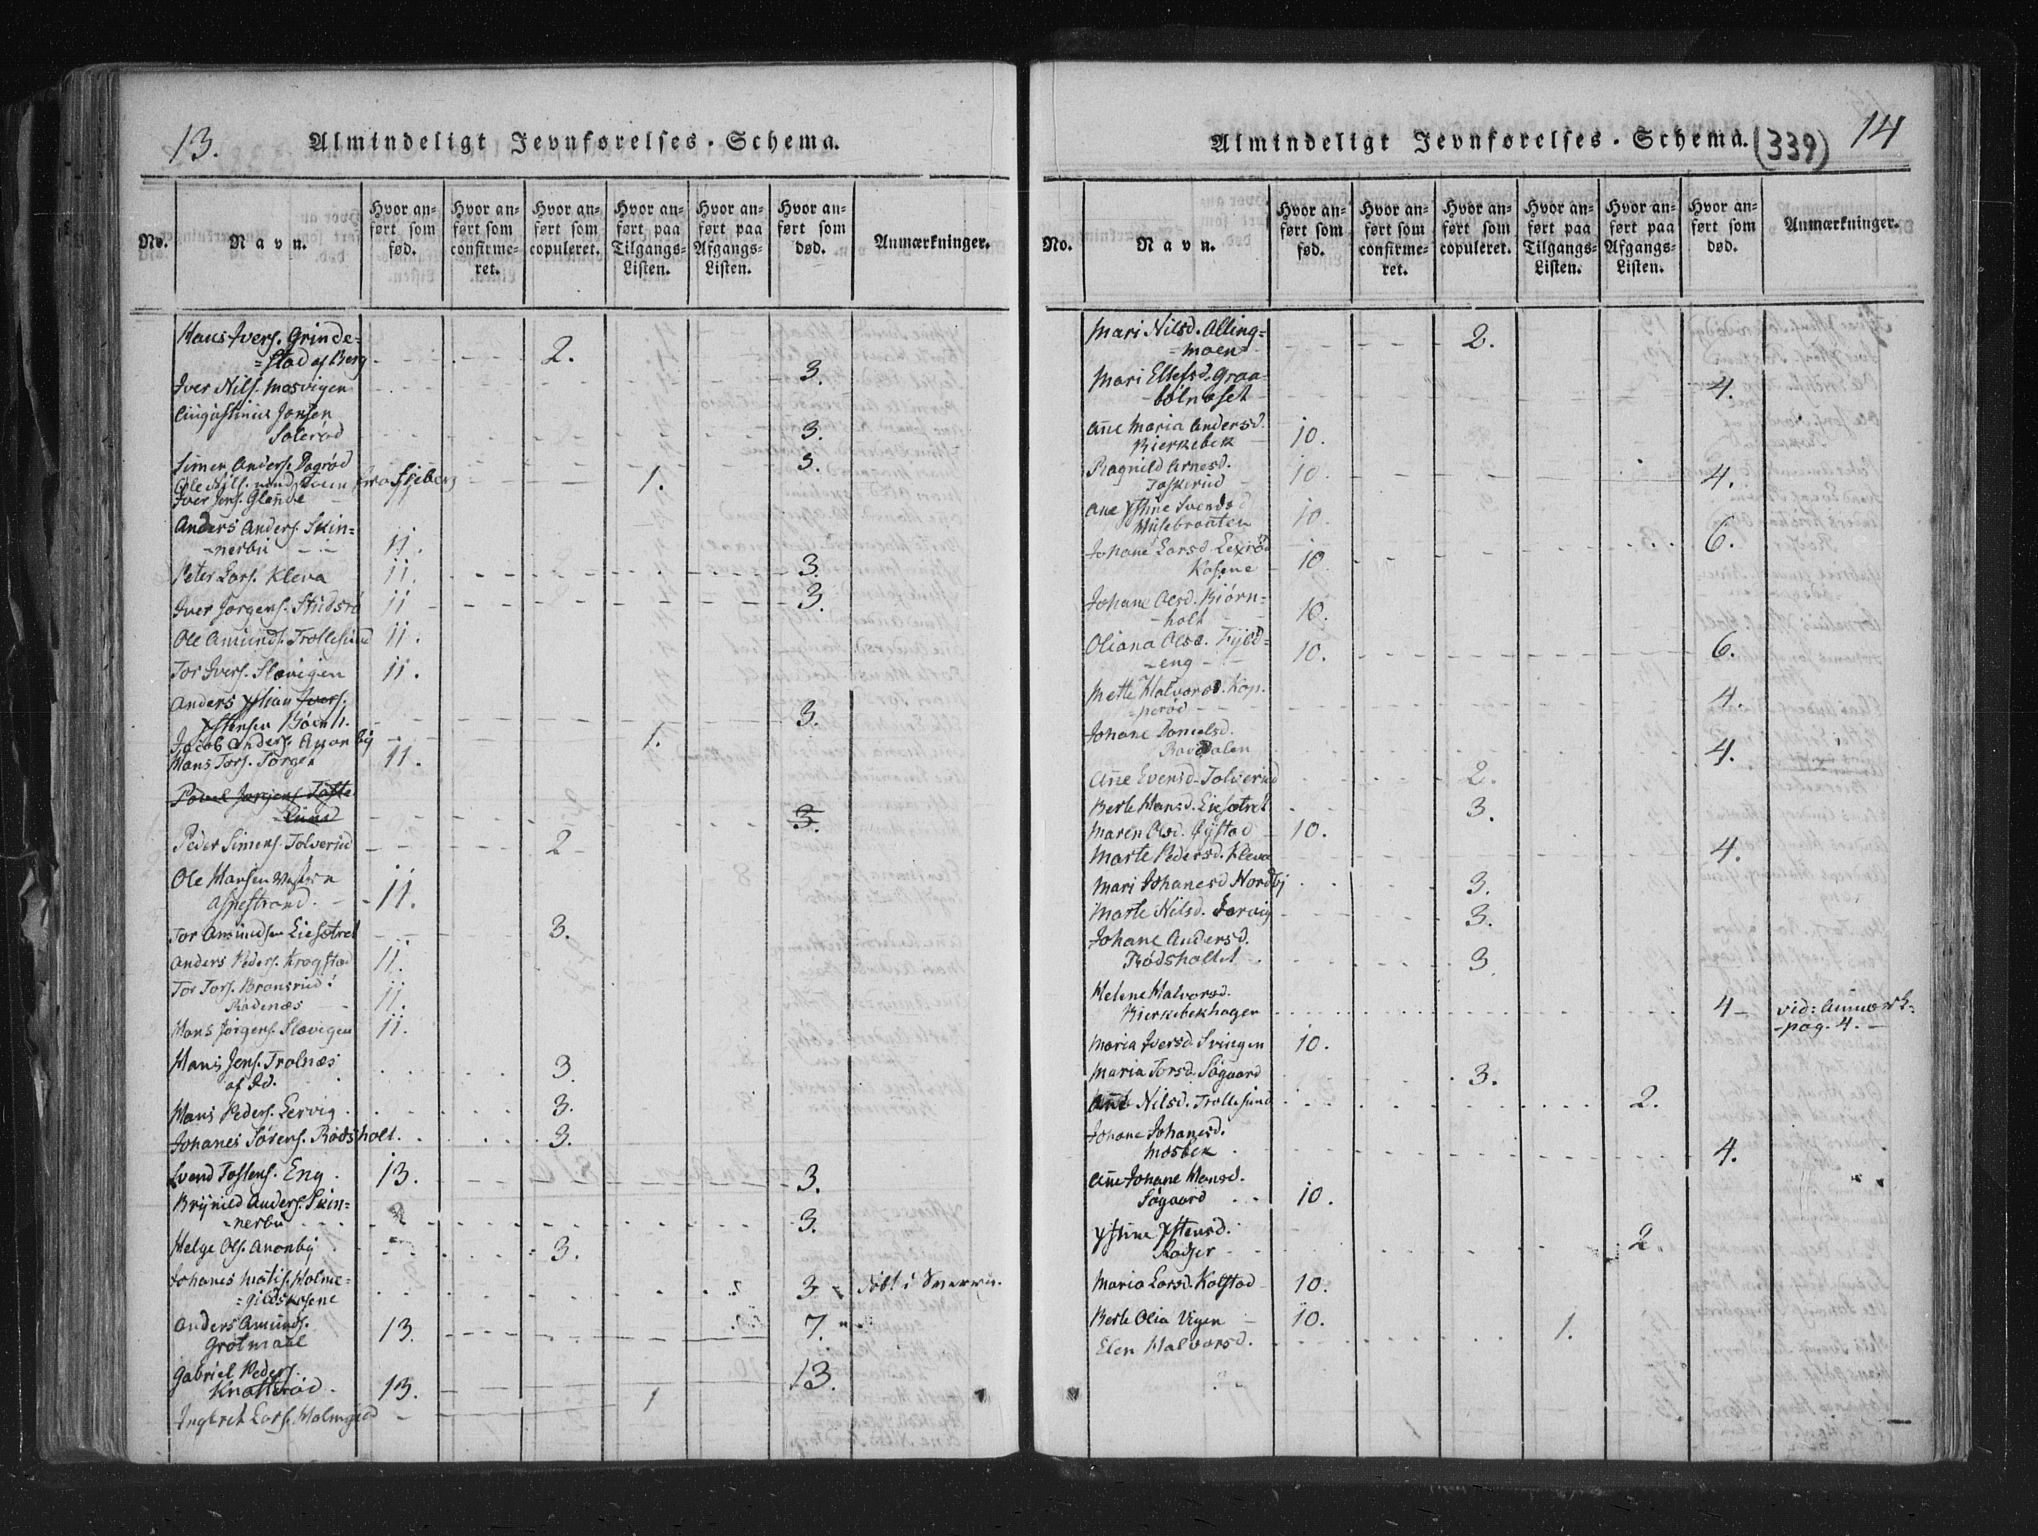 13. Almindeligt Jevnførelses-Schema.
No. Navn. Hvor anført som fød. Hvor anført som confirmeret. Hvor anført som copuleret. Hvor anført paa Tilgangs-Listen. Hvor anført paa Afgangs-Listen. Hvor anført som død. Anmærkninger.
Hans Ivers. Grinde-
=stad af Berg 2.
Iver Nils. Mosvigen 3.
Augustinus Jonsen
Solerød 3.
Simen Anders. Dagrød 3.
Ole Nils. 1.
Iver Jons. Glenne
Anders Anders. Skin=
=nerbu 11.
Peter Lars. Kleva 11. 3.
Iver Jørgens. Studsrø 11 3.
Ole Amunds. Trollesund 11.
Tor Ivers. Slævigen 11.
Anders Xstian Ivers.
Xstensen 3.
Jacob Anders. Aaonby 1.
Hans Tors. Torgen 11.
Povel Jørgens. Tofte
Lund 3.
Peder Simens. Tolverud 2
Ole Hansen
Aspestrand. 11.
Tor Amundsen Liesætret 3.
Anders Peders. Krogstad 11.
Tor Tors. Bransrud:
Rødenæs 11.
Hans Jørgens. Slævigen 11.
Hans Jens. Trolnæs
af Id. 3.
Hans Peders. Lervig. 3.
Johanes Sørens. Rødsholt. 3.
Svend Tostens. Eng. 13. 3.
Brynild Anders. Skin=
=nerbu 3.
Helge Ols. Aaonby 3.
Johanes Matis. Holme=
=gildskasene 3 født i Sverrig.
Anders Amunds.
Grotmaal 13. 7.
Gabriel Peders.
Knatterød. 13. 13.
Ingbret Lars. Holmgild 1
Almindeligt Jevnførelses-Schema. (339) 14
No. Navn. Hvor anført som fød. Hvor anført som confirmeret. Hvor anført som copuleret. Hvor anført paa Tilgangs-Listen. Hvor anført paa Afgangs-Listen. Hvor anført som død. Anmærkninger.
Mari Nilsd. Alling=
=moen 2.
Mari Ellefsd. Graa-
bølnaset 4.
Ane Maria Andersd.
Bierkebek 10.
Ragnild Arnesd.
Taskerud 10. 4.
Ane Xstine Svends d
Husebraaten 10.
Johane Larsd. Lexrød
Kasene 10. 6.
Johane Olsd. Biørn=
holt 10.
Oliana Olsd. Fyld=
=eng 10. 6.
Mette Halvorsd. Kop.
=perød 4.
Johane Danielsd.
Bovdalen 4.
Ane Evensd. Tolverud 2.
Berte Hansd. Liesætret 3.
Maren Olsd. Øystad 10.
Marte Pedersd. Kleva 4.
Mari Johanesd Nordby 3.
Marte Nilsd. Lervig 3.
Johane Andersd.
Rødsholtet 3.
Helene Halvorsd.
Bierkebekhagen 4 vid: Anmærk=
-pag. 4.
Maria Iversd. Svingen 10.
Maria Torsd. Søgaard 3.
Ane Nilsd. Trollesund 2.
Johane Johanesd.
Mosbek 4.
Ane Johane Hansd.
Søgaard 10.
Xstine Xstensd.
Rødser 2.
Maria Larsd. Kolstad 10.
Berte Olia Vigen 10.
Elen Halvorsd. 1.